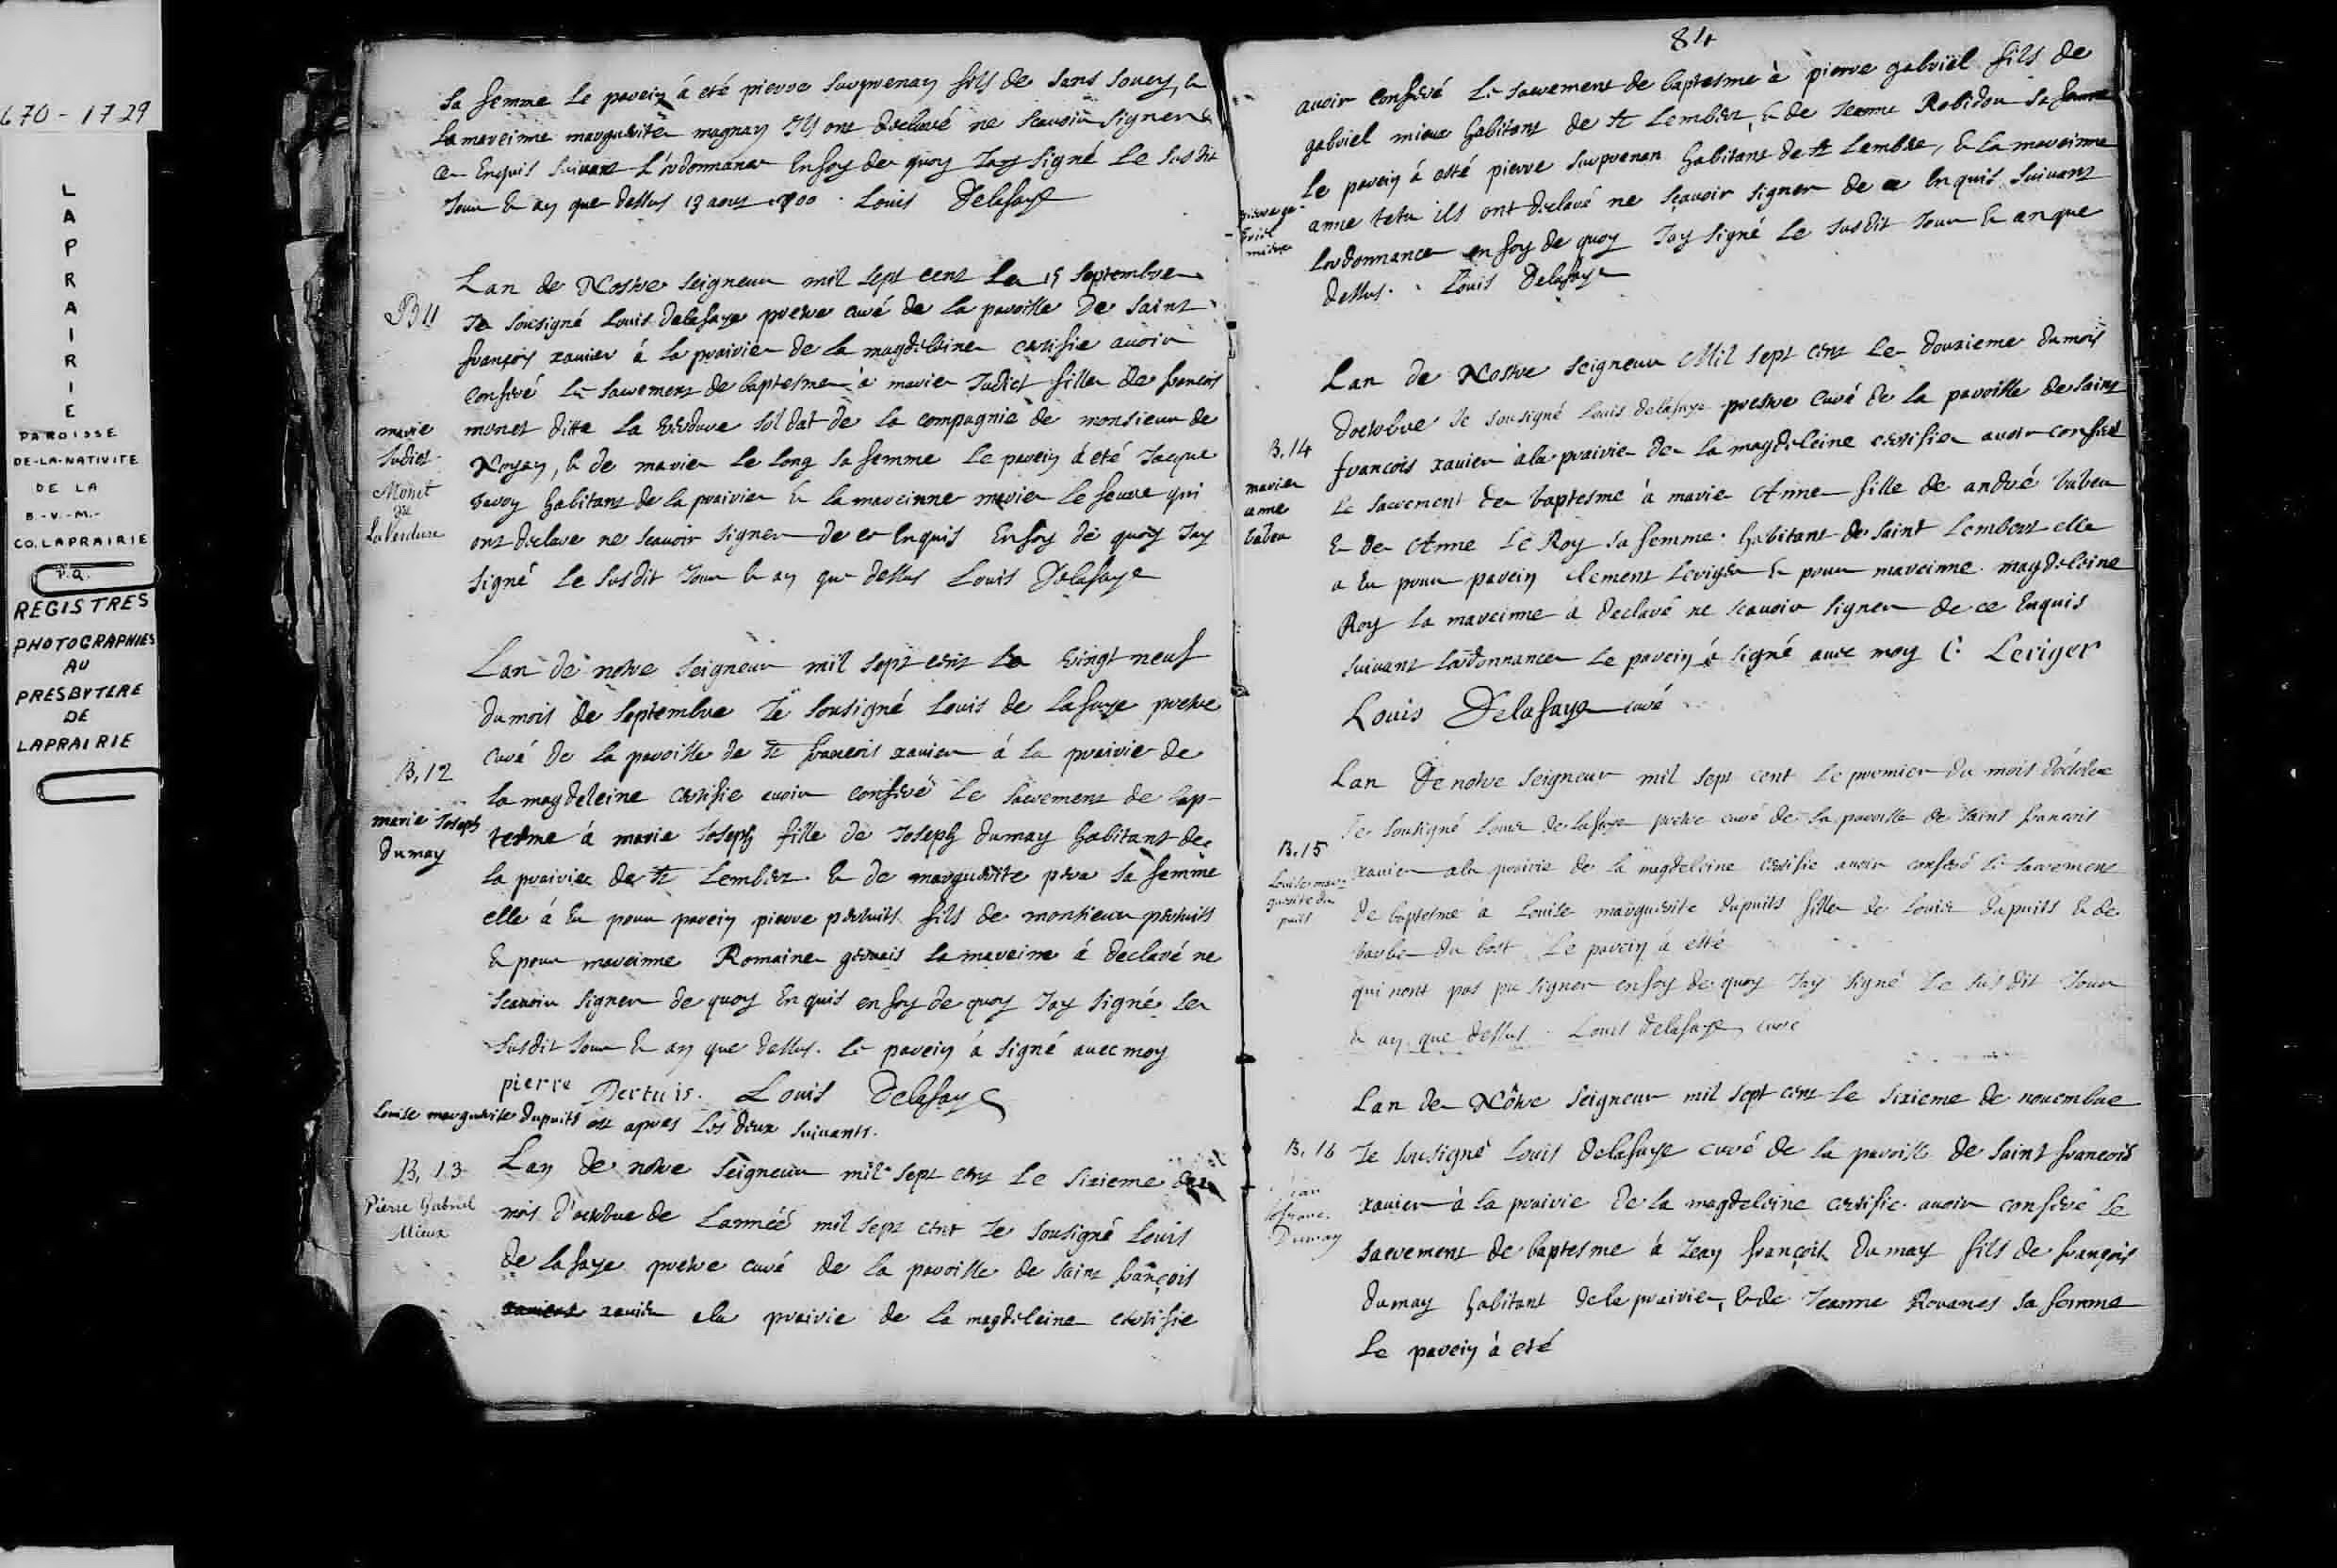 670-1729
LAPRAIRIE
PAROISSE
DE-LA-NATIVITE
DE LA
B.-V.-M.-
CO. LAPRAIRIE
P.Q.
REGISTRES
PHOTOGRAPHIES
AU
PRESBYTERE
DE
LAPRAIRIE
sa femme le parein á eté pierre surprenan fils de sans soucy, &
la mareinne marguerite magnan Ils ont declaré ne scauoir signer de
ce Enquis suivant L'ordonnance En foy de quoy Jay signé le susdit
Jour & an que dessus 13 aous 1700. Louis Delafaye
B 11
marie
Judict
Monet
dit
LaVerdure
Lan de Nostre seigneur mil sept cent Le 15 septembre
Je sousigné Louis delafaye pretre curé de la paroisse de saint
françois xauier á la prairie de la magdeleine certifie auoir
conferé le sacrement de baptesme á marie Judict fille de francois
monet ditte La verdure soldat de la compagnie de monsieur de
Noyan, & de marie Le long sa femme Le parein á eté Jacque
habitant de la prairie & la mareinne marie le feuure qui
ont declare ne scauoir signer de ce Enquis En foy de quoy Jay
signé Le susdit Jour & an que dessus Louis Delafaye
B. 12
marie Joseph
dumay
Lan de notre seigneur mil sept cent Le vingt neuf
du mois de septembre Je sousigné Louis de Lafaye pretre
curé de la paroisse de st francois xauier á la prairie de
la magdeleine certifie auoir conferé Le sacrement de bap-
tesme á marie Joseph fille de Joseph dumay habitant de
la prairie de st Lembert & de marguerite sa femme
elle á Eu pour parein pierre pertuits fils de monsieur pertuits
& pour mareinne Romaine geruais la mareine á declaré ne
scauoir signer de quoy Enquis en foy de quoy Jay signé le
susdit Jour & an que dessus. le parein á signé auec moy
pierre Pertuis. Louis Delafaye
Louise marguerite Dupuits est apres les deux suiuants.
B. 13
Pierre Gabriel
Mieux
Lan de notre seigneur mil sept cent Le sixieme du
mois d'octobre de Lanneé mil sept cent Je sousigné Louis
de Lafaye pretre curé de la paroisse de saint françois
xauier a la prairie de la magdeleine certifie
84
pierre ga-
briel
mieux
auoir conferé Le sacrement de baptesme à pierre gabriel fils de
gabriel mieux habitant de st Lembert, & de Jeanne Robidou sa femme
Le parein á esté pierre surprenan habitant de st Lembert, & la mareinne
anne tetu ils ont declaré ne scauoir signer de ce Enquis suiuant
Lordonnance en foy de quoy Jay signé Le susdit Jour & an que
dessus. Louis Delafaye
B. 14
marie
anne
babeu
Lan de Nostre seigneur Mil sept cent Le douxieme du mois
doctobre Je sousigné Louis delafaye prestre curé de la paroisse de saint
francois xauier à la prairie de la magdeleine certifie auoir conferé
Le sacrement de baptesme à marie Anne fille de andré babeu
& de Anne Le Roy sa femme habitant de saint Lembert elle
a Eu pour parein clement Leriger & pour mareinne magdeleine
Roy la mareinne á declaré ne scauoir signer de ce Enquis
suiuant Lordonnance Le parein á signé auec moy C. Leriger
Louis Delafaye curé
B. 15
Louise mar-
guerite du
puits
Lan De notre seigneur mil sept cent Le premier du mois doctobre
Je sousigné Louis de Lafaye pretre curé de la paroisse de saint francois
xauier a la prairie de la magdeleine certifie auoir conferé le sacrement
de baptesme à Louise marguerite dupuits fille de Louis dupuits & de
barbe du bost Le parein á esté
qui nont pas pu signer en foy de quoy Jay signé Le susdit Jour
& an que dessus. Louis delafaye curé
B. 16
Jean
Dumay
Lan de Nôtre seigneur mil sept cent Le sixieme de nouembre
Je sousigné Louis delafaye curé de la paroisse de saint francois
xauier à la prairie de la magdeleine certifie auoir conferé Le
sacrement de baptesme à Jean françois dumay fils de françois
dumay habitant de la prairie, & de Jeanne Rouanes sa femme
Le parein á eté